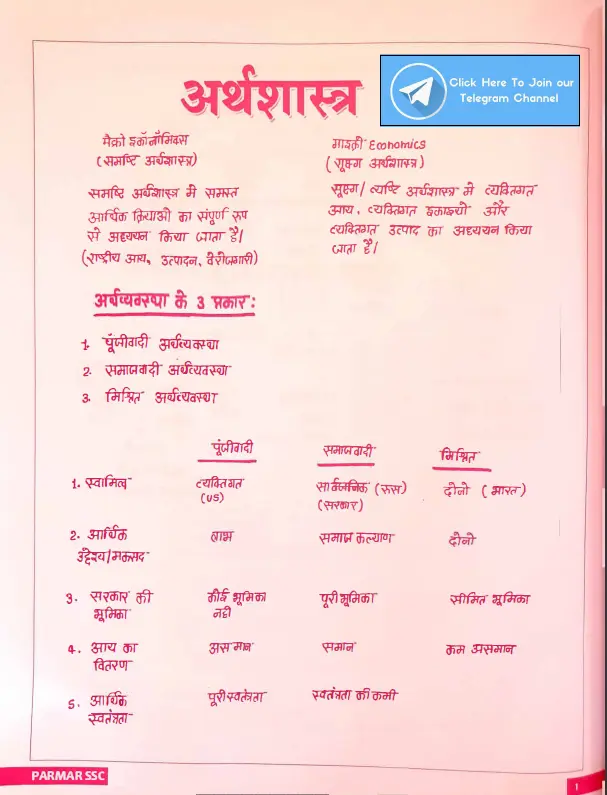 अर्थशास्त्र
Click Here To Join our
Telegram Channel
मैक्रो इकॉनॉमिक्स
(समष्टि अर्थशास्त्र)
समष्टि अर्थशास्त्र में समस्त
आर्थिक क्रियाओं का संपूर्ण रूप
से अध्ययन किया जाता है।
(राष्ट्रीय आय, उत्पादन, बेरोजगारी)
माइक्रो Economics
(सूक्ष्म अर्थशास्त्र)
सूक्ष्म/व्यष्टि अर्थशास्त्र में व्यक्तिगत
आय, व्यक्तिगत इकाइयों और
व्यक्तिगत उत्पाद का अध्ययन किया
जाता है।
अर्थव्यवस्था के 3 प्रकार:
1. पूँजीवादी अर्थव्यवस्था
2. समाजवादी अर्थव्यवस्था
3. मिश्रित अर्थव्यवस्था
पूंजीवादी समाजवादी मिश्रित
1. स्वामित्व व्यक्तिगत सार्वजनिक (रूस) दोनो (भारत)
(US) (सरकार)
2. आर्थिक लाभ समाज कल्याण दोनो
उद्देश्य/मकसद
3. सरकार की कोई भूमिका पूरी भूमिका सीमित भूमिका
भूमिका नही
4. आय का असमान समान कम असमान
वितरण
5. आर्थिक पूरी स्वतंत्रता स्वतंत्रता की कमी
स्वतंत्रता
PARMAR SSC
1